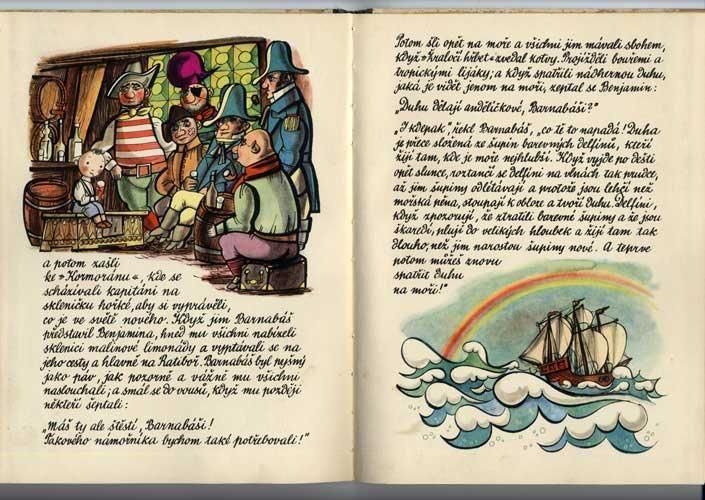 a potom zašli
ke »Kormoránu«, kde se
scházívali kapitáni na
skleničku hořké, aby si vyprávěli,
co je ve světě nového. Když jim Barnabáš
představil Benjamina, hned mu všichni nabízeli
sklenici malinové limonády a vyptávali se na
jeho cesty a hlavně na Ratiboř. Barnabáš byl pyšný
jako páv, jak pozorně a vážně mu všichni
naslouchali; a smál se do vousů, když mu později
někteří šeptali:
„Máš ty ale štěstí, Barnabáši!
Takového námořníka bychom také potřebovali!“
Potom šli opět na moře a všichni jim mávali sbohem,
když »Kraločí hřbet« zvedal kotvy. Projížděli bouřemi a
tropickými lijáky; a když spatřili nádhernou duhu,
jaká je vidět jenom na moři, zeptal se Benjamin:
„Duhu dělají andělíčkové, Barnabáši?“
„I kdepak“, řekl Barnabáš, „co tě to napadá! Duha
je přece složená ze šupin barevných delfínů, kteří
žijí tam, kde je moře nejhlubší. Když vyjde po dešti
opět slunce, roztančí se delfíni na vlnách tak prudce,
až jim šupiny odlétávají a protože jsou lehčí než
mořská pěna, stoupají k obloze a tvoří duhu. Delfíni,
když zpozorují, že ztratili barevné šupiny a že jsou
škaredí, plují do velikých hloubek a žijí tam tak
dlouho, než jim narostou šupiny nové. A teprve
potom můžeš znovu
spatřit duhu
na moři!“